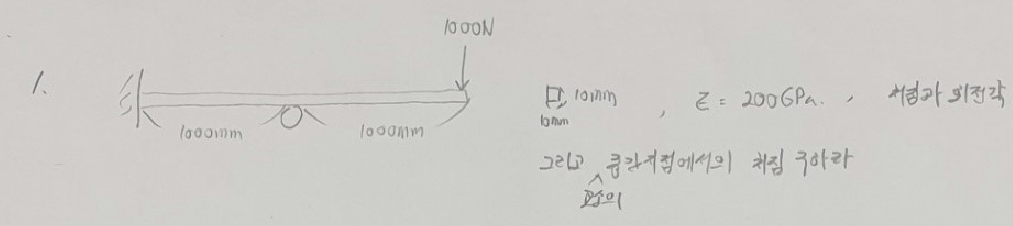 1000N
1.
10mm , E = 200GPa. , 처짐과 회전각
10mm
1000mm 1000mm
그리고 중간지점에서의 처짐 구하라
요소의